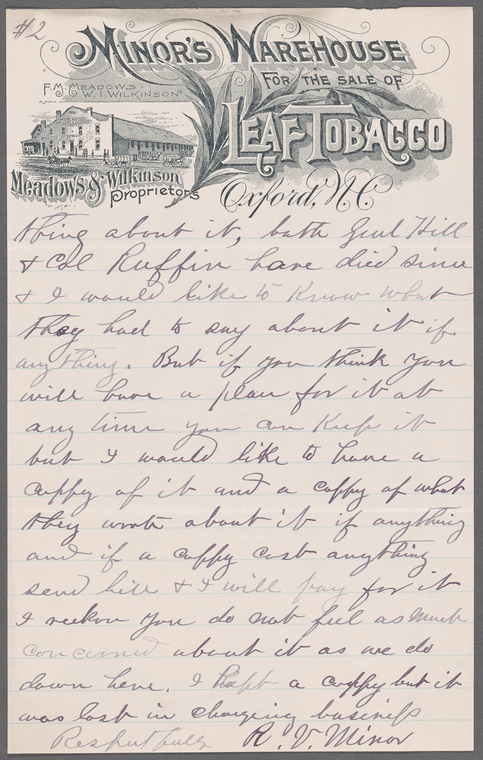 #2
MINOR'S WAREHOUSE
FOR THE SALE OF
F.M. MEADOWS
W.T. WILKINSON
LEAF TOBACCO
Meadows & Wilkinson
Proprietors
Oxford, N.C
thing about it, bath Genl Hill
& Col Ruffin have died since
& I would like to know what
they had to say about it if
any thing. But if you think you
will have a place for it at
any time you can keep it
but I would like to have a
coppy of it and a coppy of what
they wrote about it if anything
and if a coppy cost anything
send bill & I will pay for it
I reckon you do not feel as much
concerned about it as we do
down here. I kept a coppy but it
was lost in changing business
Respectfully R. V. Minor